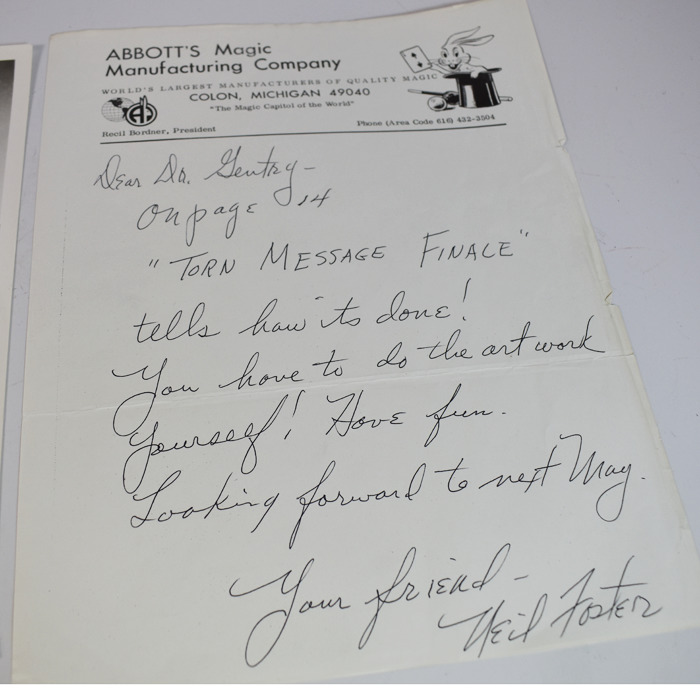 ABBOTT'S Magic
Manufacturing Company
WORLD'S LARGEST MANUFACTURERS OF QUALITY MAGIC
COLON, MICHIGAN 49040
"The Magic Capitol of the World"
Recil Bordner, President
Phone (Area Code 616) 432-3504
Dear Dr. Gentry -
on page 14
"TORN MESSAGE FINALE"
tells how its done!
You have to do the art work
yourself! Have fun.
Looking forward to next May.
Your friend -
Neil Foster